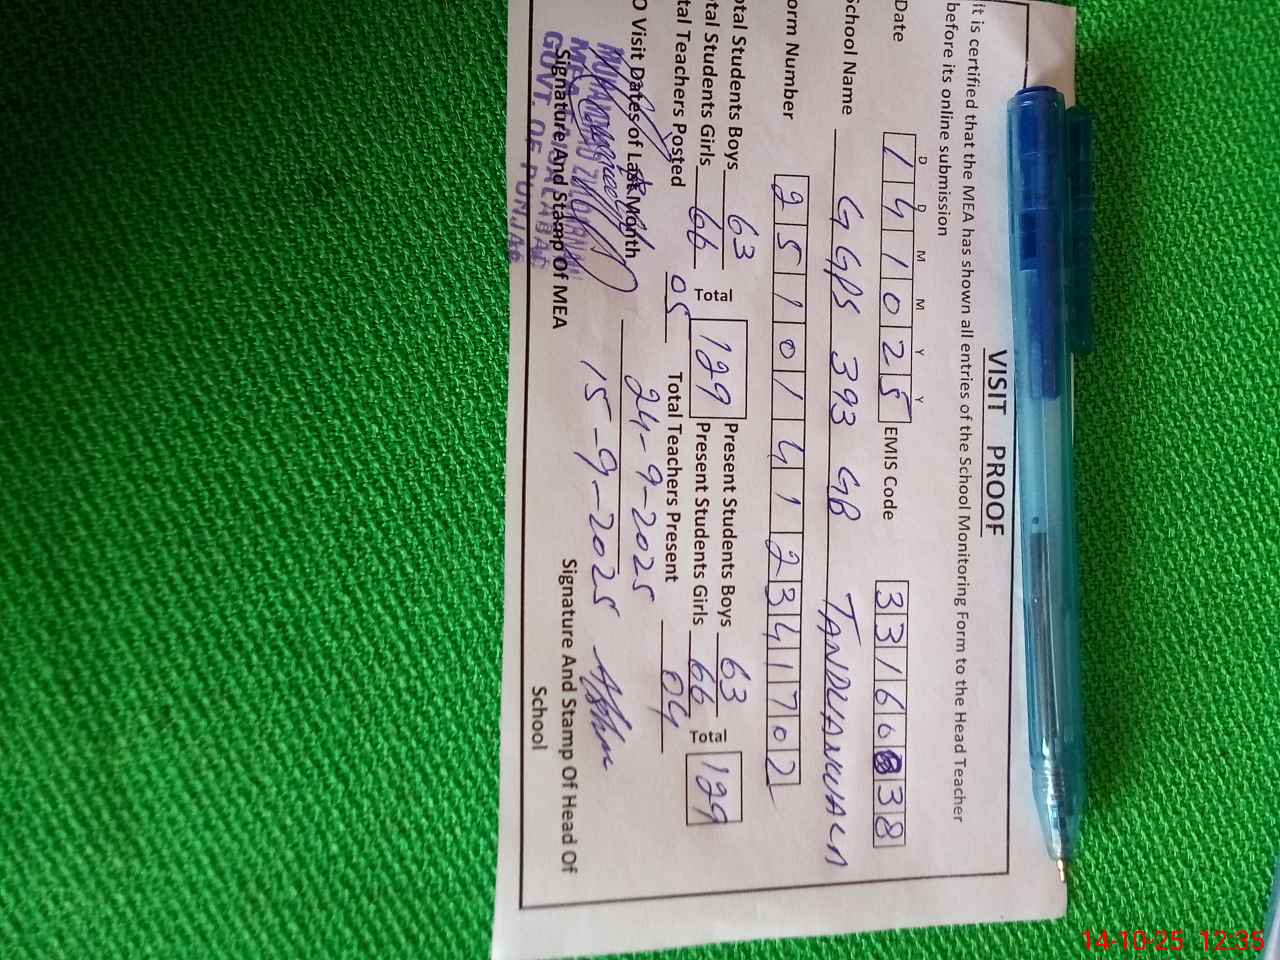 VISIT PROOF
it is certified that the MEA has shown all entries of the School Monitoring Form to the Head Teacher
before its online submission
D D M M Y Y
Date 141025 EMIS Code 33160 38
School Name GGPS 393 GB TANDLIANWALA
orm Number 25101412341702
otal Students Boys 63 Total 129 Present Students Boys 63 Total 129
otal Students Girls 66 Present Students Girls 66
tal Teachers Posted 05 Total Teachers Present 04
O Visit Dates of Last Month 24-9-2025
15-9-2025
Signature And Stamp Of MEA
GOVT. OF PUNJAB
Signature And Stamp Of Head Of
School
14-10-25 12:35